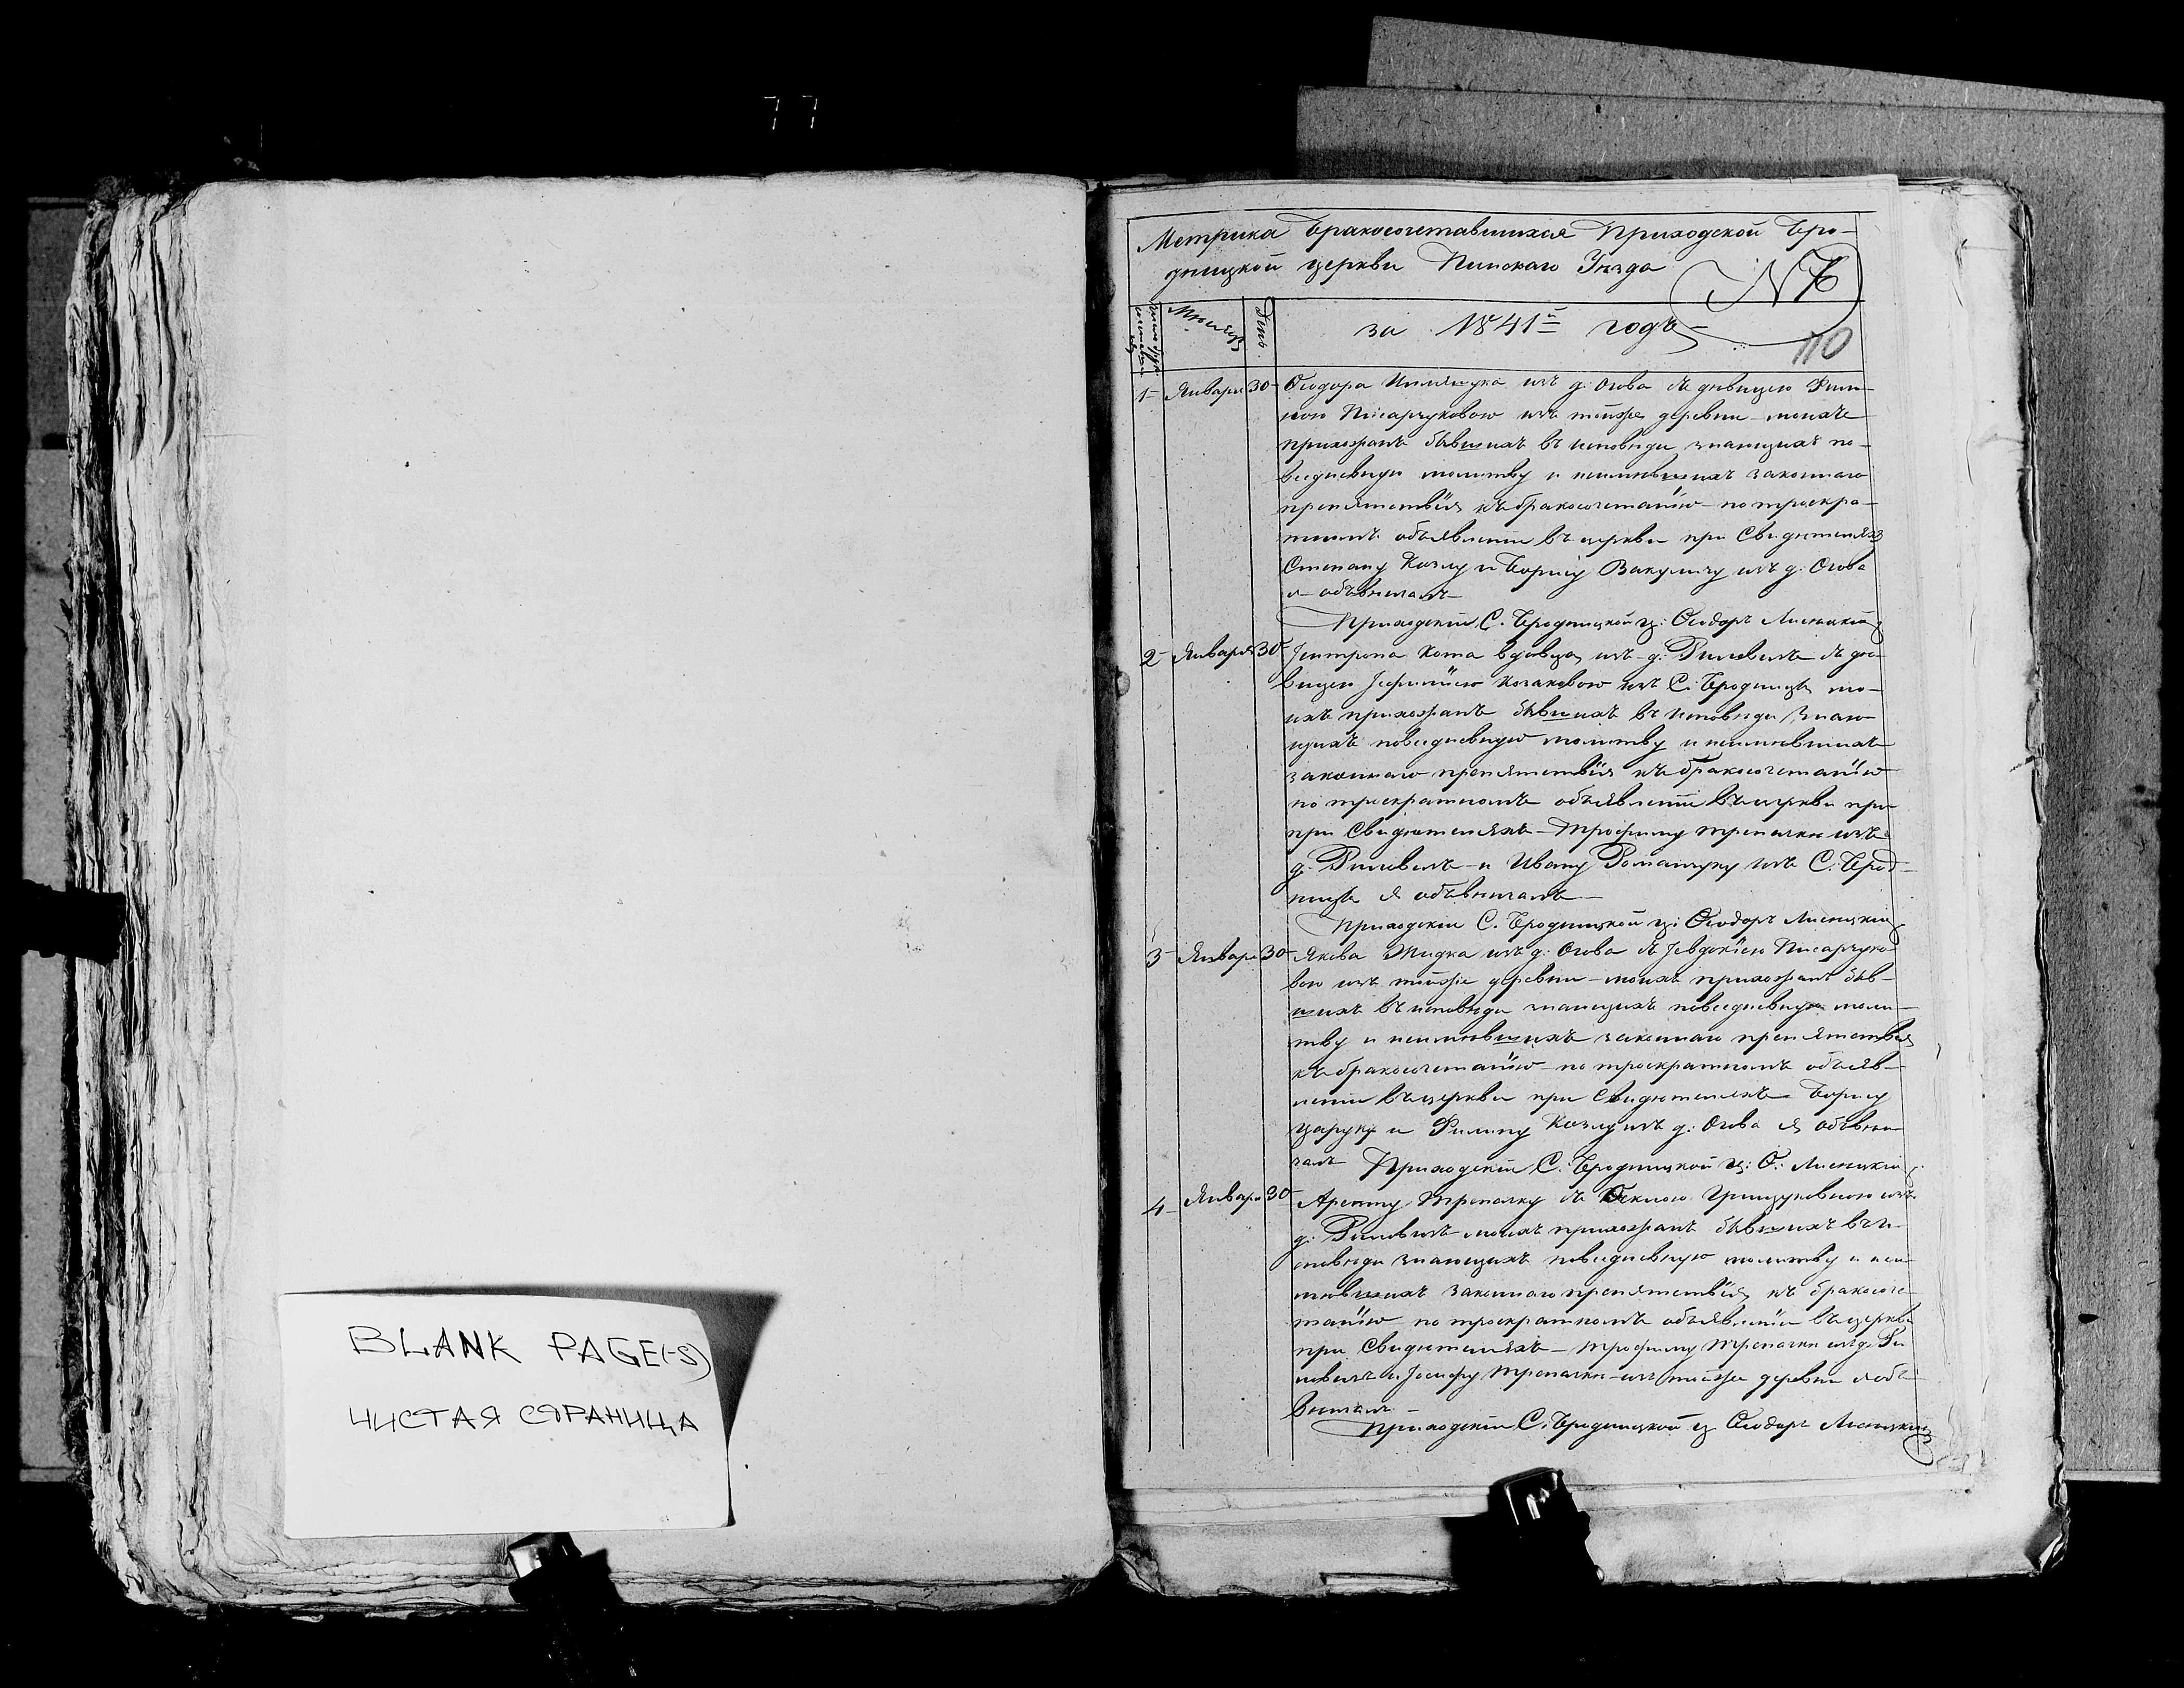 77
Метрика бракосочетавшихся Приходской Бро-
дницкой церкви Пинскаго Уезда
N 76
Месяцъ
День.
за 1841й годъ
110
1 Января 30 Ѳеодора изъ д: Огова съ девицею
Писарчуковою изъ тойже деревни моихъ
прихожанъ бывшихъ въ исповеди знающихъ по-
вседневную молитву и неимевшихъ законнаго
препятствія къ бракосочетанію по троекра-
тномъ объявленіи въ церкви при Свидетеляхъ
Степану Козлу и Борису Вакуличу изъ д: Огова
я обвенчалъ
Приходскій С. Бродницкой ц: Ѳеодоръ Лисецкій
2 Января 30 Кота вдовца изъ д: съ де-
вицею Козаковою изъ С: Бродницы мо-
ихъ прихожанъ бывшихъ въ исповеди знаю-
щихъ повседневную молитву и неимевшихъ
законнаго препятствія къ бракосочетанію
по троекратномъ объявленіи въ церкви при
при Свидетеляхъ Трофиму Трепачки изъ
д: и Ивану Романчуку изъ С: Брод-
ницы я обвенчалъ
Приходскій С. Бродницкой ц: Ѳеодоръ Лисецкій
3 Января 30 Якова Жидка изъ д: Огова съ Іевдокіею Писарчуко-
вою изъ тойже деревни моихъ прихожанъ быв-
шихъ въ исповеди знающихъ повседневную моли-
тву и неимевшихъ законнаго препятствія
къ бракосочетанію по троекратномъ объяв-
леніи въ церкви при Свидетеляхъ Борису
Царуку и Филипу Козлу изъ д: Огова я обвен-
чалъ Приходскій С. Бродницкой ц: Ѳ: Лисецкій
4 Января 30 Трепачку съ Ѳеклою Грицуковною изъ
д: моихъ прихожанъ бывшихъ въ и-
споведи знающихъ повседневную молитву и неи-
мевшихъ законнаго препятствія къ бракосоче-
танію по троекратномъ объявленіи въ церкви
при Свидетеляхъ Трофиму Трепачки изъ д:
и Іосифу Трепачки изъ тойже деревни я об-
венчалъ
Приходскій С. Бродницкой ц Ѳеодоръ Лисецкій
BLANK PAGE(-S)
ЧИСТАЯ СТРАНИЦА